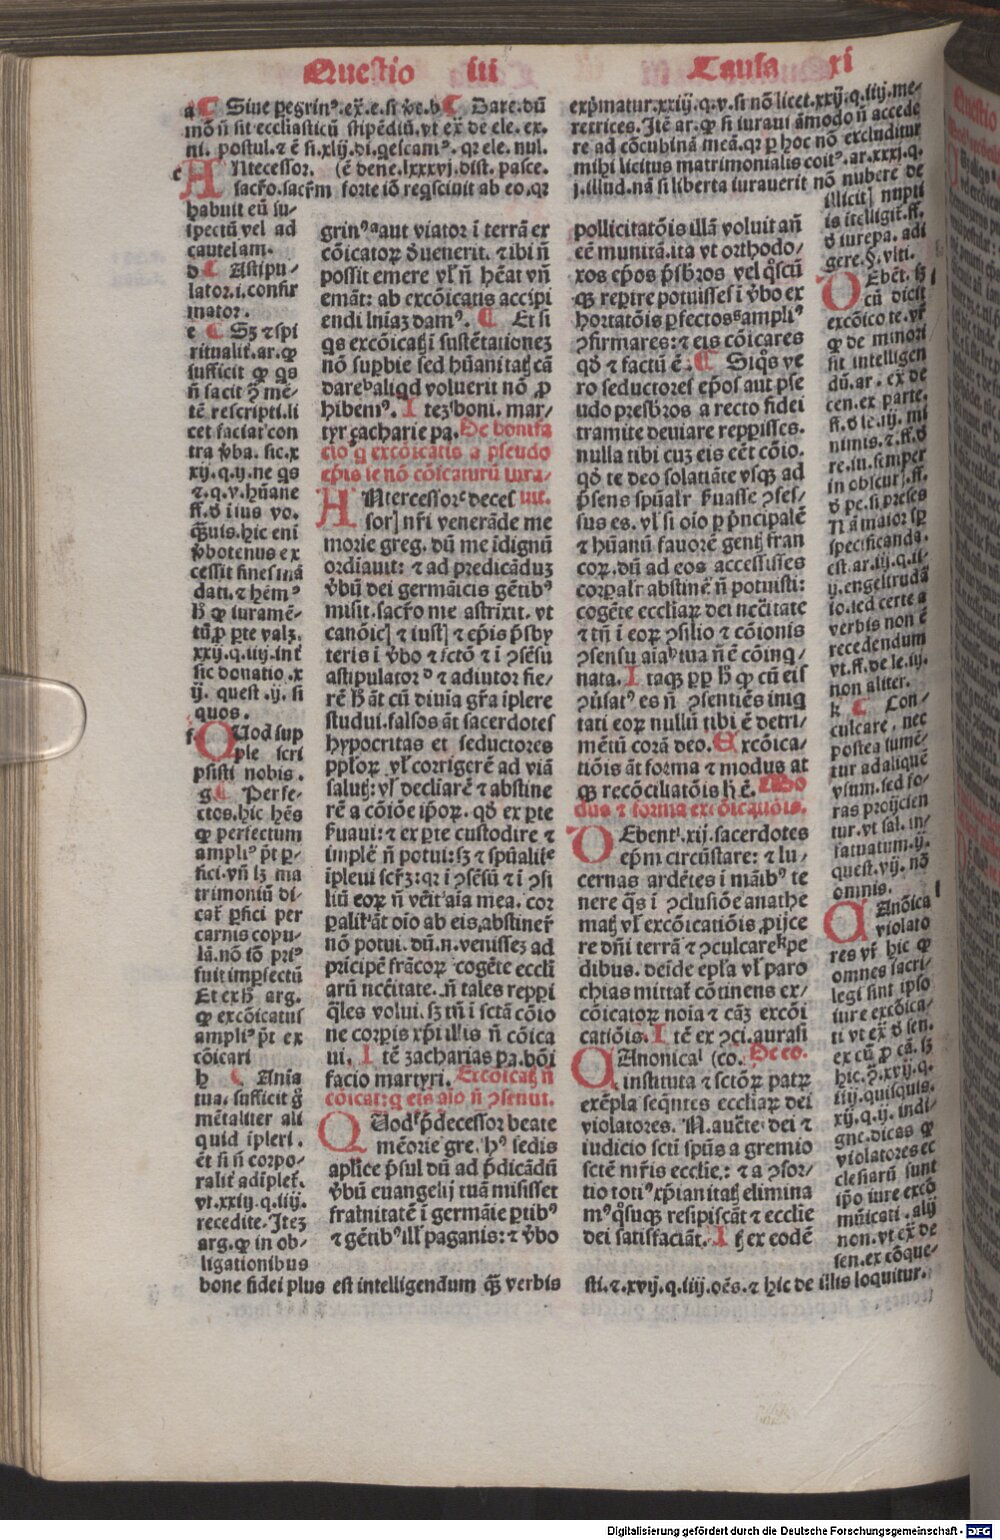 Questio iii Causa xi
a ¶ Siue pegrinꝰ.ex̄.e.si v̄e.b ¶ Dare.dū
mō n̄ sit ecclīasticū stipēdiū.vt ex̄ de ele. ex.
ni. postul.⁊ ē si.xlij.di.q̄escam⁹. qr ele. nul.
c ANtecessor. (ē dene.lxxxvj.dist. pasce.
sacr̄o.sacr̄m forte iō reqsciuit ab eo.qr
habuit eū su-
spectū vel ad
cautelam.
d ¶ Astipu-
lator.i.confir
mator.
e ¶ Sꝫ ⁊ spi
ritualit̄.ar.ꝙ
sufficit ꝙ qs
n̄ facit ꝯ̄ mē-
tē rescripti.li
cet faciat con
tra v̄ba. sic.x
xij.q.ij.ne qs
⁊.q.v.hūane
ff.ð i ius vo.
q̄uis.hic eni
v̄botenus ex
cessit fines mā
dati.⁊ hēm⁹
h̄ ꝙ iuramē-
tū ꝓ ꝑte valꝫ.
xxij.q.iiij.int̄
sic donatio.x
ij. quest.ij. si
quos.
f QUod sup
ple scri
psisti nobis.
g ¶ Perfe-
ctos.hic hēs
ꝙ perfectum
ampliꝰ p̄t ꝑ-
fici.vn̄ lꝫ ma
trimoniū di-
cat̄ ꝑfici per
carnis copu-
lā.nō iō pri⁹
fuit imꝑfectū
Et ex h̄ arg.
ꝙ excōicatus
ampliꝰ p̄t ex
cōicari
h ¶ Ania
tua. sufficit g̊
mētaliter ali
quid īpleri.
ēt si n̄ corpo-
ralit̄ adīplet̄.
vt.xxiij.q.iiij.
recedite.Iteꝫ
arg.ꝙ in ob-
ligationibus
bone fidei plus est intelligendum q̄ꝫ verbis
grin⁹ᵃaut viator ī terrā ex
cōicatoꝝ ðuenerit.⁊ ibi n̄
possit emere vl̄ n̄ hēat vn̄
emāt: ab excōicatis accipi
endi lniaꝫ dam⁹. ¶ Et si
qs excōicatꝭ ī sustētationeꝫ
nō suꝑbie sed hūanitatꝭ cā
dareᵇaliqd voluerit nō ꝓ
hibem⁹. Iteꝫᶜboni. mar-
tyr çacharie pa. De bonifa
cio q̄ excōicatis a pseudo
ep̄is se nō cōicaturū iura-
uit.
ANtercessorᶜ deces
sorꝭ nr̄i venerāde me
morie greg. dū me īdignū
ordīauit: ⁊ ad predicāduꝫ
v̄bū dei germāicis gētib⁹
misit.sacr̄o me astrīxit. vt
canōicꝭ ⁊ iustꝭ ⁊ ep̄is p̄sby
teris ī v̄bo ⁊ fctō ⁊ ī ꝯsēsu
astipulatorᵈ ⁊ adiutor fie-
rē h̄ āt cū diuīa gr̄a īplere
studui.falsos āt sacerdotes
hypocritas et seductores
pp̄loꝝ vl̄ corrigerē ad viā
salutꝭ:vl̄ declīarē ⁊ abstine
rē a cōiōe ip̄oꝝ. qð ex ꝑte
ẜuaui: ⁊ ex ꝑte custodire ⁊
implē n̄ potui:sꝫ ⁊ spūalitᵉ
īpleui scr̄ꝫ:qr ī ꝯsēsū ⁊ ī ꝯsi
liū eoꝝ n̄ vēit aīa mea. cor
ꝑalit̄ āt oīo ab eis,abstiner̄
nō potui. dū.n.venisseꝫ ad
pricipē frācoꝝ cogēte eccli
arū ncc̄itate..n̄ tales repp̄i
q̄les volui.sꝫ tn̄ ī sctā cōio
ne corꝑis xp̄i illis n̄ cōica
ui. Itē zacharias pa.bōi
facio martyri. Excōicatꝭ n̄
cōicat:q eis aīo n̄ ꝯsentit.
QUodᶠp̄decessor beate
mēorie gre. hꝰ sedis
aplice p̄sul dū ad p̄dicādū
v̄bū euangelij tuā misisset
fraternitatē ī germāie ꝑtibꝰ
⁊ gētibꝰill̄ paganis:⁊ v̄bo
exp̄matur.xxij.q.v.si nō licet.xxij.q.iiij.me-
retrices.Itē ar. ꝙ si iuraui āmodo n̄ accede
re ad cōcubinā meā.qr ꝑ hoc nō excluditur
mihi licitus matrimonialis coitꝰ.ar.xxxj.q.
j.illud.nā si liberta iurauerit nō nubere de
pollicitatōis illā voluit an̄
eē munitā.ita vt orthodo-
xos ep̄os p̄sbros vel q̊scū
qꝫ reꝑire potuisses ī v̄bo ex
hortatōis ꝑfectosᵍampliꝰ
ꝯfirmares:⁊ eis cōicares
qð ⁊ factū ē. ¶ Siq̊s ve
ro seductores ep̄os aut pse
udo presbros a recto fidei
tramite deuiare repp̄isses.
nulla tibi cuꝫ eis eēt cōio.
qð te deo solatiāte vsqꝫ ad
p̄sens spūalr ẜuasse ꝯfes-
sus es. vl̄ si oīo ꝓ p̄ncipalē
⁊ hūanū fauorē gentꝭ fran
coꝝ.dū ad eos accessisses
corꝑalr abstinē n̄ potuisti:
cogēte eccliaꝝ dei ncc̄itate
⁊ tn̄ ī eoꝝ ꝯsilio ⁊ cōionis
ꝯsensu aīaʰtua n̄ ē cōinq̄-
nata. Itaqꝫ ꝓp h̄ ꝙ cū eis
ꝯv̊sat⁹ es n̄ ꝯsentiēs iniq̄
tati eoꝝ nullū tibi ē detri-
mētū corā deo. Excōica-
tiōis āt forma ⁊ modus at
qꝫ recōciliatōis h̄ ē. Mo
dus ⁊ forma excōicatiōis.
DEbentⁱ.xij.sacerdotes
ep̄m circūstare: ⁊ lu-
cernas ardētes ī māibꝰ te
nere q̄s ī ꝯclusiōe anathe
matꝭ vl̄ excōicatiōis ꝓijce
re dn̄i terrā ⁊ ꝯculcareᵏpe
dibus. deīde epl̄a vl̄ paro
chias mittat̄ cōtinens ex-
cōicatoꝝ noīa ⁊ cāꝫ excōi
catiōis. Itē ex ꝯci.aurasi
CAnonicaˡ (co. De eo.
instituta ⁊ sctōꝝ patꝝ
exēpla seq̄ntes eccliaꝝ dei
violatores. N.aucte dei ⁊
iudicio scti spūs a gremio
sctē mr̄is ecclie:⁊ a ꝯsor-
tio totiꝰxp̄ianitatꝭ elimina
m⁹ q̊sqꝫ resipiscāt ⁊ ecclie
dei satisfaciāt. Itꝭ ex eodē
illicitꝭ nupti
is itelligit̄.ff.
ð iurepa. adi
gere.§.viti.
i DEbēt.sꝫ
cū dicit̄
excōico te.vr̄
ꝙ de minori
sit intelligen
dū.ar. ex̄ de
cen.ex parte.
ff.ð le.iij. mi
nimis.⁊.ff.ð
re.iu.semper
in obscurꝭ.ff.
ð pe.si p̄ses
Nā maior sꝑ
specificanda.
est.ar.iij.q.ii-
ij.engeltrudā
so.sed certe a
verbis non ē
recedendum
vt.ff.de le.iij.
non aliter.
k ¶ Con-
culcare. nec
postea sumē-
tur ad aliquē
vsum.sed fo-
ras proijcien
tur.vt sal. in-
fatuatum.ij.
quest.vij. nō
omnis.
l CAnōica
violato
res vr̄ hic ꝙ
omnes sacri-
legi sint ipso
iure excōica-
ti vt ex̄ ð sen.
ex cū ꝓ cā.sꝫ
hic.ꝯ̄.xvij.q.
iiij.quisquis.
xij.q.ij. indi-
gne.dicas ꝙ
violatores ec
clesiarū sunt
ip̄o iure excō
mūicati . alij
non.vt ex̄ de
sen.ex cōque-
sti.⁊.xvij.q.iiij.oēs.⁊ hic de illis loquitur.
Digitalisierung gefördert durch die Deutsche Forschungsgemeinschaft - DFG